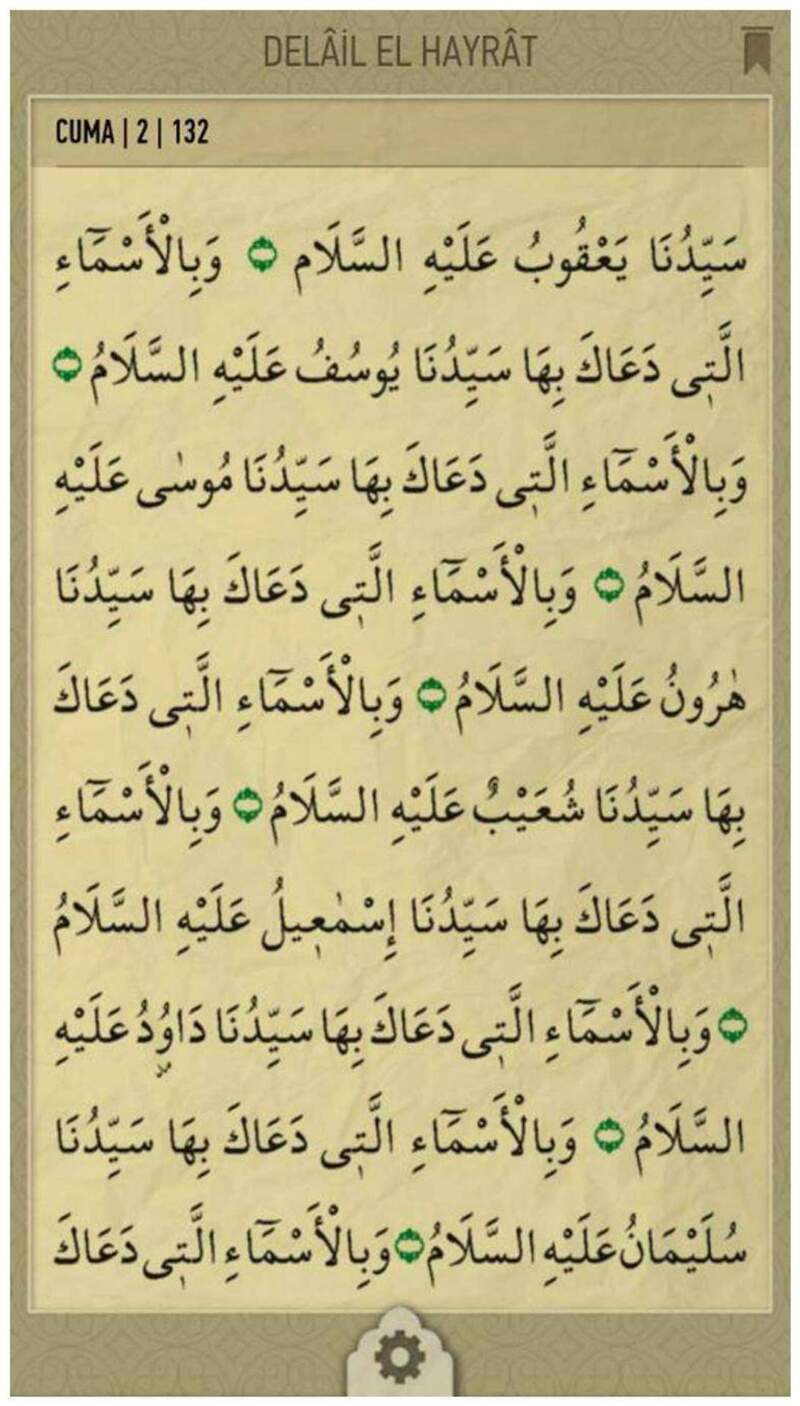 DELÂİL EL HAYRÂT
CUMA | 2 | 132
سَيِّدُنَا يَعْقُوبُ عَلَيْهِ السَّلَام وَبِالْأَسْمَٓاءِ
الَّتٖى دَعَاكَ بِهَا سَيِّدُنَا يُوسُفُ عَلَيْهِ السَّلَامُ
وَبِالْأَسْمَٓاءِ الَّتٖى دَعَاكَ بِهَا سَيِّدُنَا مُوسٰى عَلَيْهِ
السَّلَامُ وَبِالْأَسْمَٓاءِ الَّتٖى دَعَاكَ بِهَا سَيِّدُنَا
هٰرُونُ عَلَيْهِ السَّلَامُ وَبِالْأَسْمَٓاءِ الَّتٖى دَعَاكَ
بِهَا سَيِّدُنَا شُعَيْبٌ عَلَيْهِ السَّلَامُ وَبِالْأَسْمَٓاءِ
الَّتٖى دَعَاكَ بِهَا سَيِّدُنَا إِسْمٰعٖيلُ عَلَيْهِ السَّلَامُ
وَبِالْأَسْمَٓاءِ الَّتٖى دَعَاكَ بِهَا سَيِّدُنَا دَاوُ۫دُ عَلَيْهِ
السَّلَامُ وَبِالْأَسْمَٓاءِ الَّتٖى دَعَاكَ بِهَا سَيِّدُنَا
سُلَيْمَانُ عَلَيْهِ السَّلَامُ وَبِالْأَسْمَٓاءِ الَّتٖى دَعَاكَ